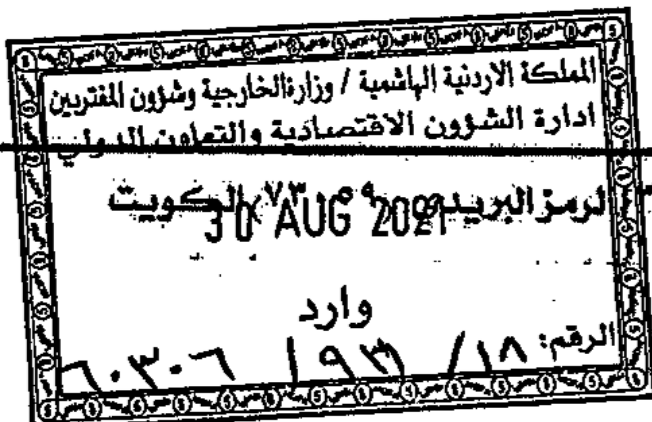 المملكة الاردنية الهاشمية / وزارة الخارجية وشؤون المغتربين
ادارة الشؤون الاقتصادية والتعاون الدولي
الرمز البريدي الكويت
30 AUG 2021
وارد
الرقم: ١٨ / ٩٣ / ٦٠٣٠٦